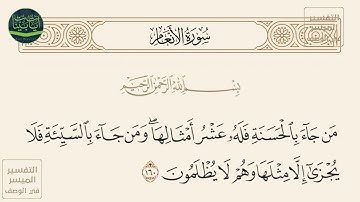 سُورَةُ الأَنْعَامِ
التفسير
الميسر
بِسْمِ اللَّهِ الرَّحْمَٰنِ الرَّحِيمِ
مَن جَآءَ بِٱلْحَسَنَةِ فَلَهُۥ عَشْرُ أَمْثَالِهَا ۖ وَمَن جَآءَ بِٱلسَّيِّئَةِ فَلَا
يُجْزَىٰٓ إِلَّا مِثْلَهَا وَهُمْ لَا يُظْلَمُونَ ١٦٠
التفسير
الميسر
في الوصف